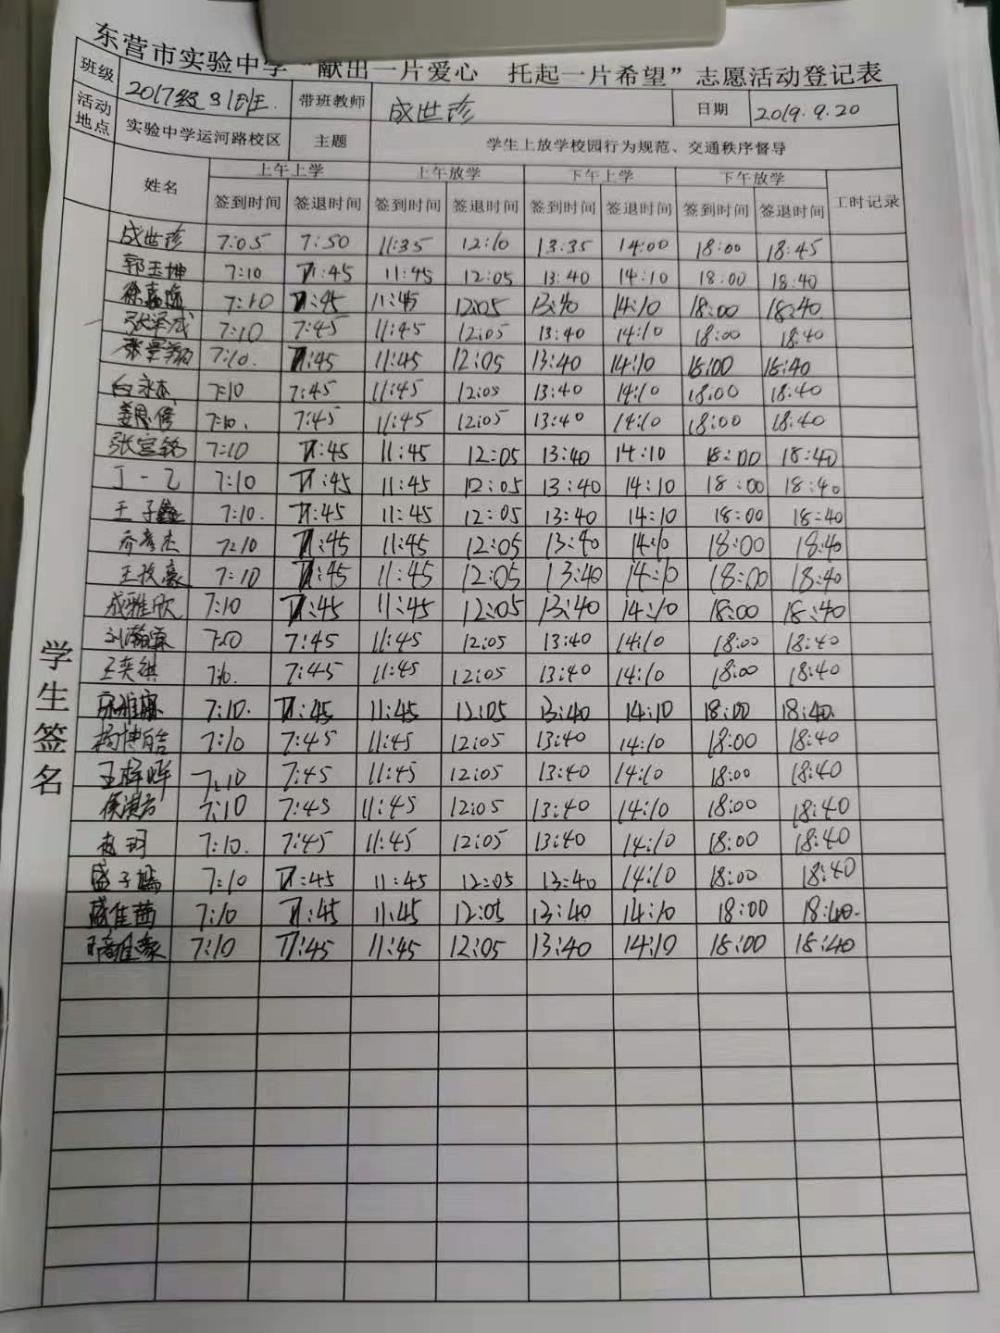 东营市实验中学“献出一片爱心 托起一片希望”志愿活动登记表
班级 2017级31班 带班教师 成世珍 日期 2019.9.20
活动地点 实验中学运河路校区 主题 学生上放学校园行为规范、交通秩序督导
姓名 上午上学 上午放学 下午上学 下午放学 工时记录
签到时间 签退时间 签到时间 签退时间 签到时间 签退时间 签到时间 签退时间
学生签名
成世珍 7:05 7:50 11:35 12:10 13:35 14:00 18:00 18:45
郭玉坤 7:10 7:45 11:45 12:05 13:40 14:10 18:00 18:40
7:10 7:45 11:45 12:05 13:40 14:10 18:00 18:40
张泽成 7:10 7:45 11:45 12:05 13:40 14:10 18:00 18:40
7:10. 7:45 11:45 12:05 13:40 14:10 18:00 18:40
白永杰 7:10 7:45 11:45 12:05 13:40 14:10 18:00 18:40
7:10. 7:45 11:45 12:05 13:40 14:10 18:00 18:40
张宫铭 7:10 7:45 11:45 12:05 13:40 14:10 18:00 18:40
丁一乙 7:10 7:45 11:45 12:05 13:40 14:10 18:00 18:40
王子鑫 7:10. 7:45 11:45 12:05 13:40 14:10 18:00 18:40
乔孝杰 7:10 7:45 11:45 12:05 13:40 14:10 18:00 18:40
王牧豪 7:10 7:45 11:45 12:05 13:40 14:10 18:00 18:40
成雅欣 7:10 7:45 11:45 12:05 13:40 14:10 18:00 18:40
7:45 11:45 12:05 13:40 14:10 18:00 18:40
王奕祺 7:45 11:45 12:05 13:40 14:10 18:00 18:40
7:10. 7:45 11:45 12:05 13:40 14:10 18:00 18:40
杨博皓 7:10 7:45 11:45 12:05 13:40 14:10 18:00 18:40
王梓晔 7:10 7:45 11:45 12:05 13:40 14:10 18:00 18:40
7:10 7:45 11:45 12:05 13:40 14:10 18:00 18:40
赵珂 7:10. 7:45 11:45 12:05 13:40 14:10 18:00 18:40
7:10 7:45 11:45 12:05 13:40 14:10 18:00 18:40
盛佳茜 7:10 7:45 11:45 12:05 13:40 14:10 18:00 18:40.
7:10 7:45 11:45 12:05 13:40 14:10 18:00 18:40